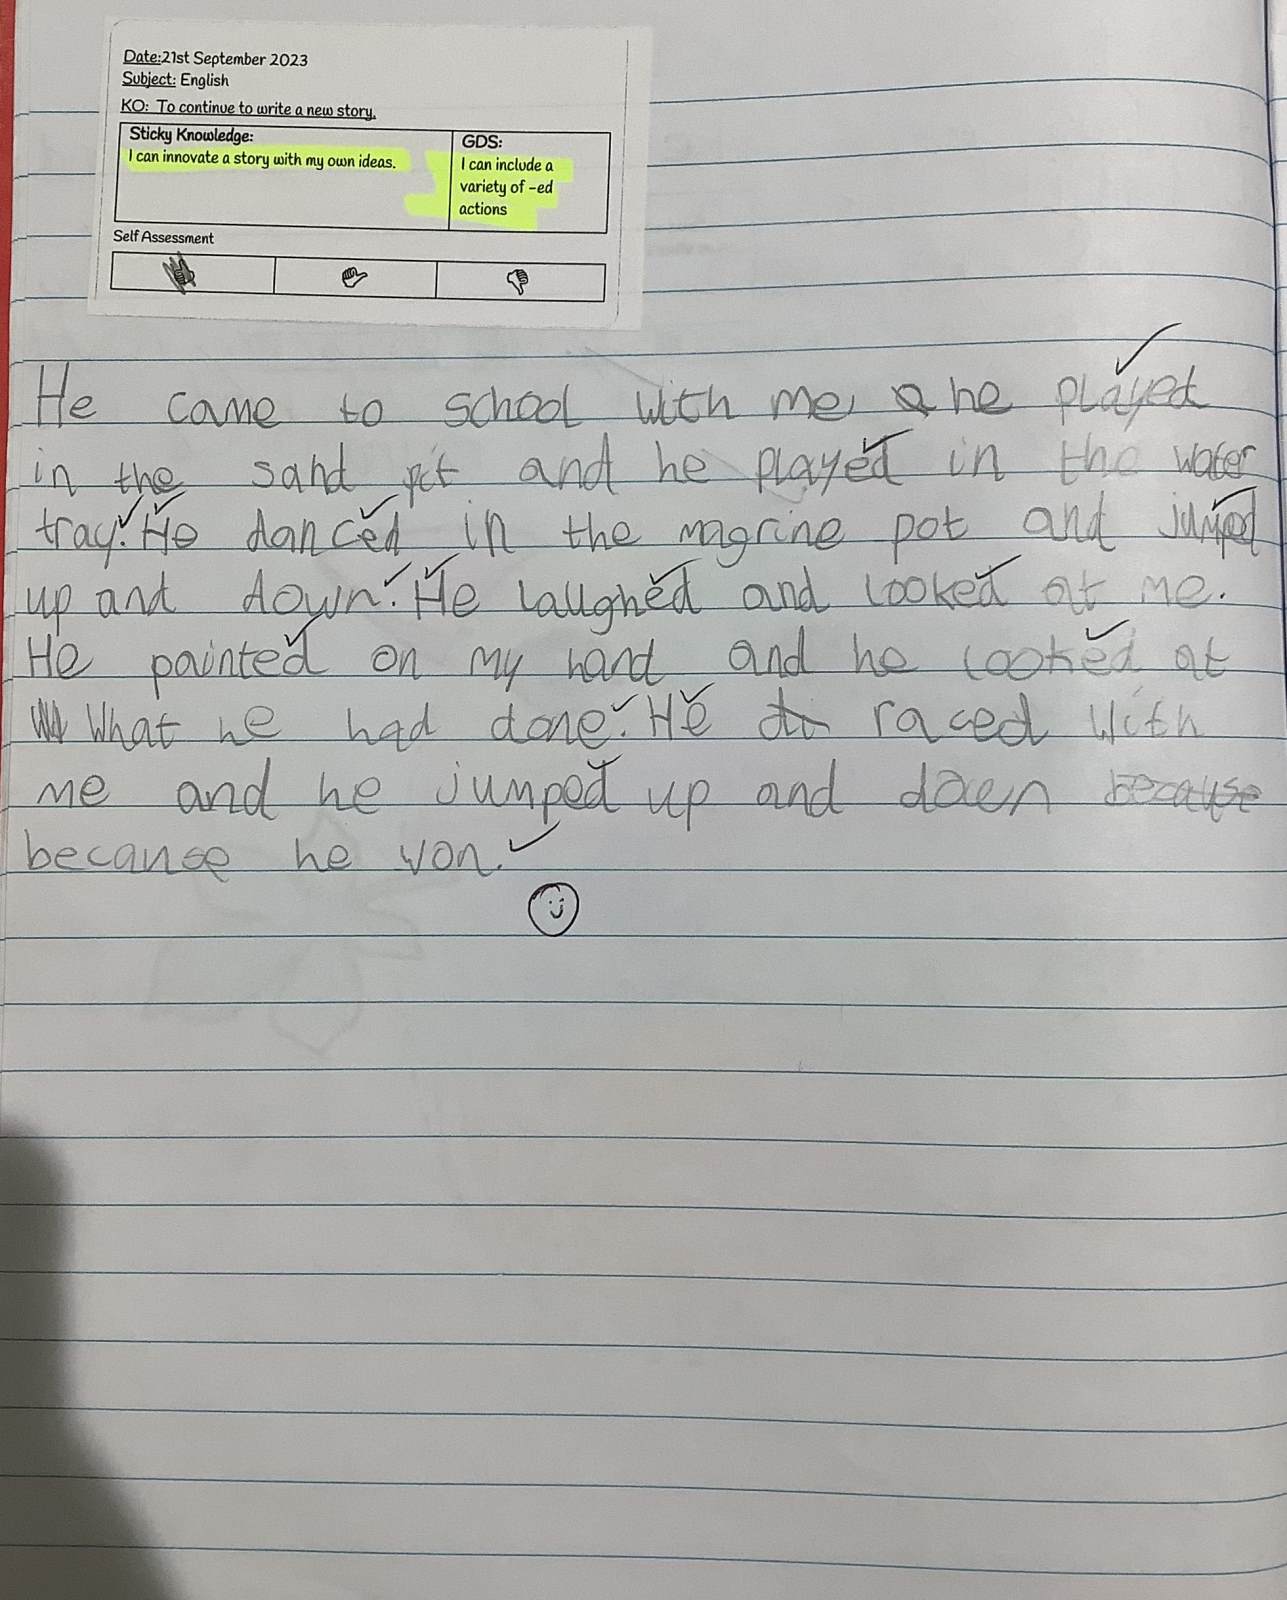 Date:21st September 2023
Subject: English
KO: To continue to write a new story.
Sticky Knowledge:
I can innovate a story with my own ideas.
GDS:
I can include a
variety of -ed
actions
Self Assessment
He came to school with me, he played
in the sand pit and he played in the water
tray. He danced in the magrine pot and jumped
up and down. He laughed and looked at me.
He painted on my hand and he looked at
What he had done. He raced with
me and he jumped up and down because
because he won.